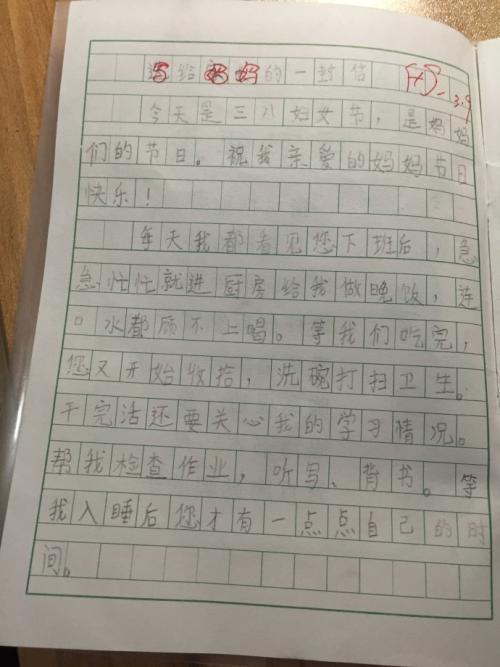 写给妈妈的一封信
3.9
今天是三八妇女节，是妈妈
们的节日。祝我亲爱的妈妈节日
快乐！
每天我都看见您下班后，急
急忙忙就进厨房给我做晚饭，连
口水都顾不上喝。等我们吃完，
您又开始收拾，洗碗打扫卫生。
干完活还要关心我的学习情况。
帮我检查作业，听写、背书。等
我入睡后您才有一点点自己的时
间。